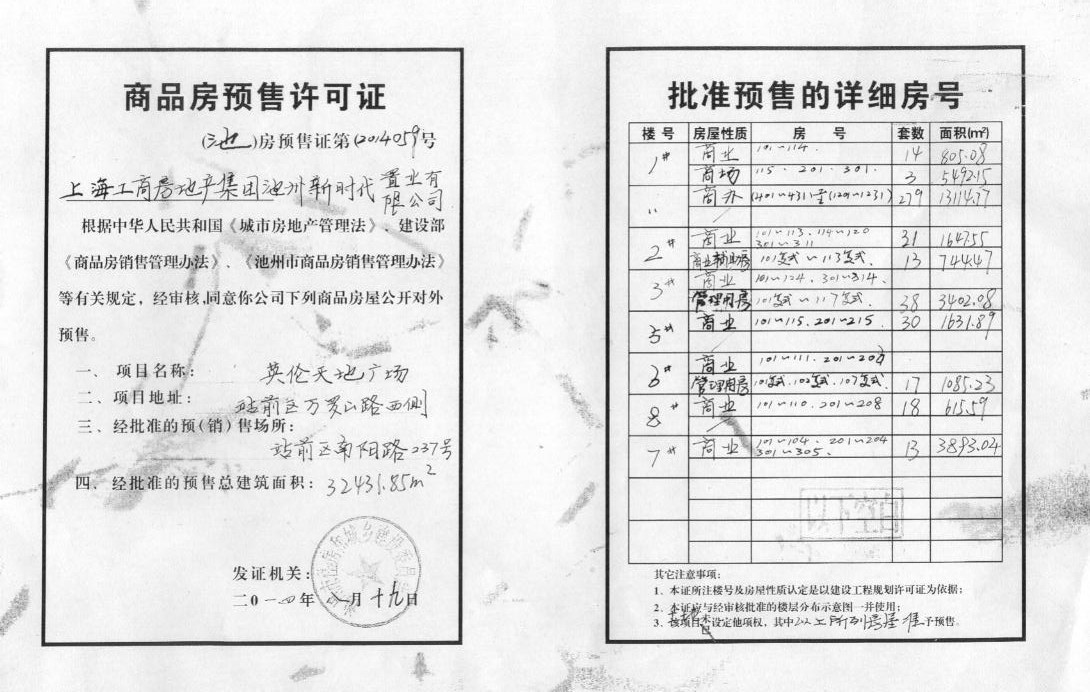 商品房预售许可证
(池)房预售证第(2014059号
上海工商房地产集团池州新时代置业有限公司
根据中华人民共和国《城市房地产管理法》、建设部
《商品房销售管理办法》、《池州市商品房销售管理办法》
等有关规定，经审核,同意你公司下列商品房屋公开对外
预售。
一、项目名称：英伦天地广场
二、项目地址：站前区万罗山路西侧
三、经批准的预(销)售场所：
站前区南阳路237号
四、经批准的预售总建筑面积：32431.85m²
发证机关：
二0一四年 月十九日
批准预售的详细房号
楼号 房屋性质 房 号 套数 面积(m²)
1# 商业 101~114. 14 805.08
商场 115. 201. 301. 3 5492.15
〃 商办 (401~431)至(1201~1231) 279 13114.77
2# 商业 101~113. 114~120 301~311 31 1647.55
商业辅助房 101复式~113复式. 13 744.47
3# 商业 101~124. 301~314.
管理用房 101复式~117复式. 38 3402.08
5# 商业 101~115. 201~215. 30 1631.89
6# 商业 101~111. 201~203
管理用房 101复式.102复式.107复式. 17 1085.23
8# 商业 101~110. 201~208 18 615.59
7# 商业 101~104. 201~204 301~305. 13 3893.04
以下空白
其它注意事项：
1、本证所注楼号及房屋性质认定是以建设工程规划许可证为依据；
2、本证应与经审核批准的楼层分布示意图一并使用；
3、该项目未设定他项权，其中以上所列房屋准予预售。